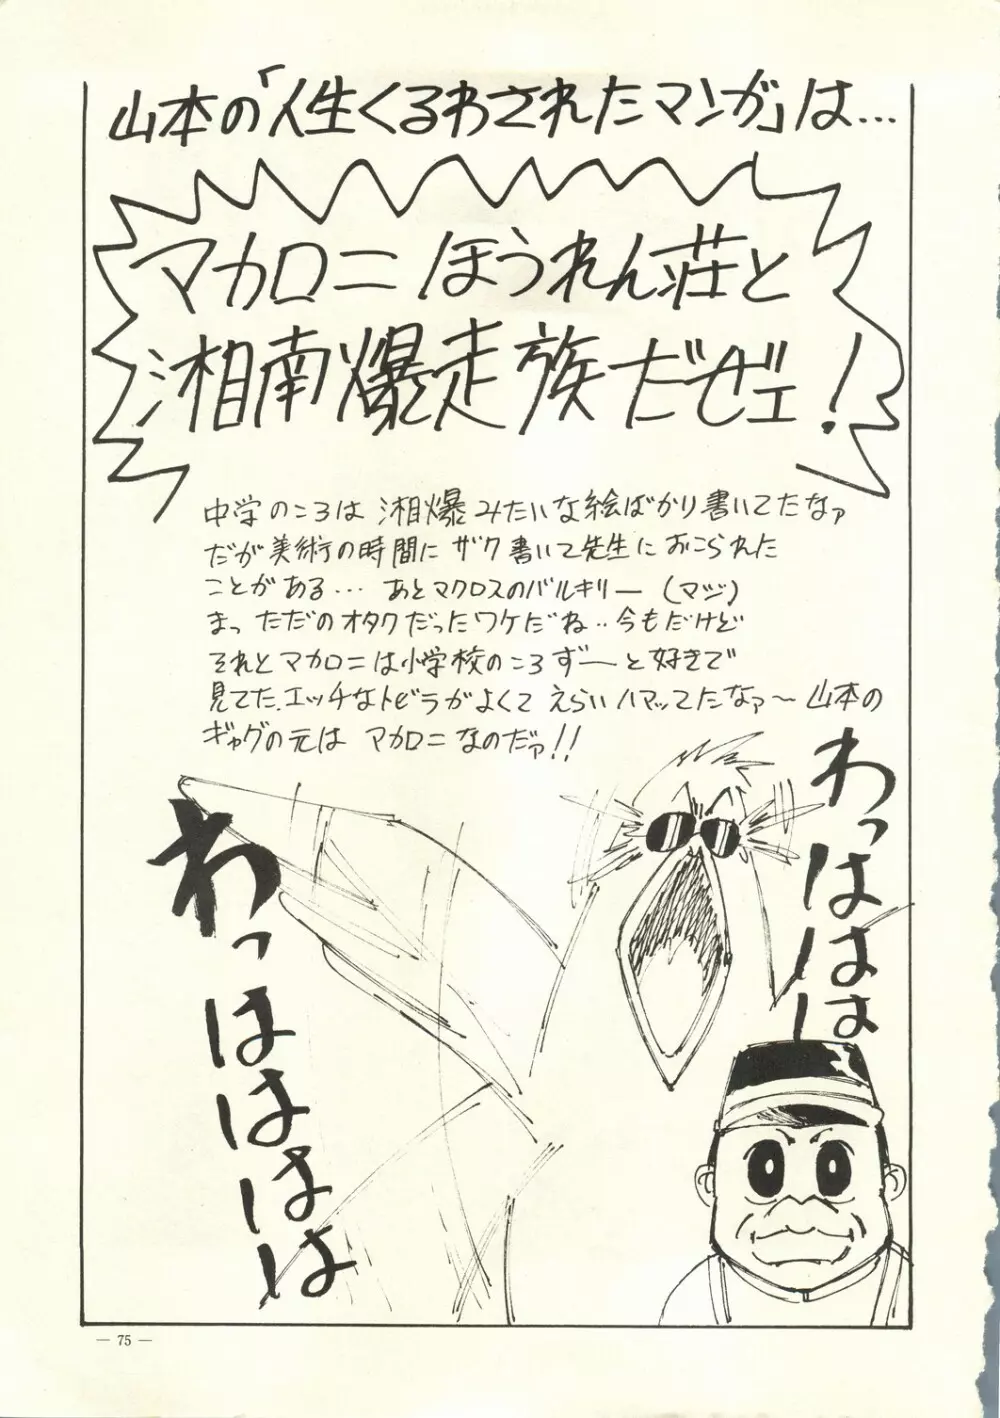 山本の「人生くるわされたマンガ」は…
マカロニほうれん荘と
湘南爆走族だぜェ!
中学のころは 湘爆みたいな絵ばかり書いてたなァ
だが美術の時間に ザク書いて先生におこられた
ことがある… あとマクロスのバルキリー(マジ)
まっ ただのオタクだったワケだね‥今もだけど
それとマカロニは小学校のころずーっと好きで
見てた.エッチなトビラがよくて えらいハマッてたなァ〜 山本の
ギャグの元は マカロニなのだァ!!
わっははは
わっはははは
— 75 —